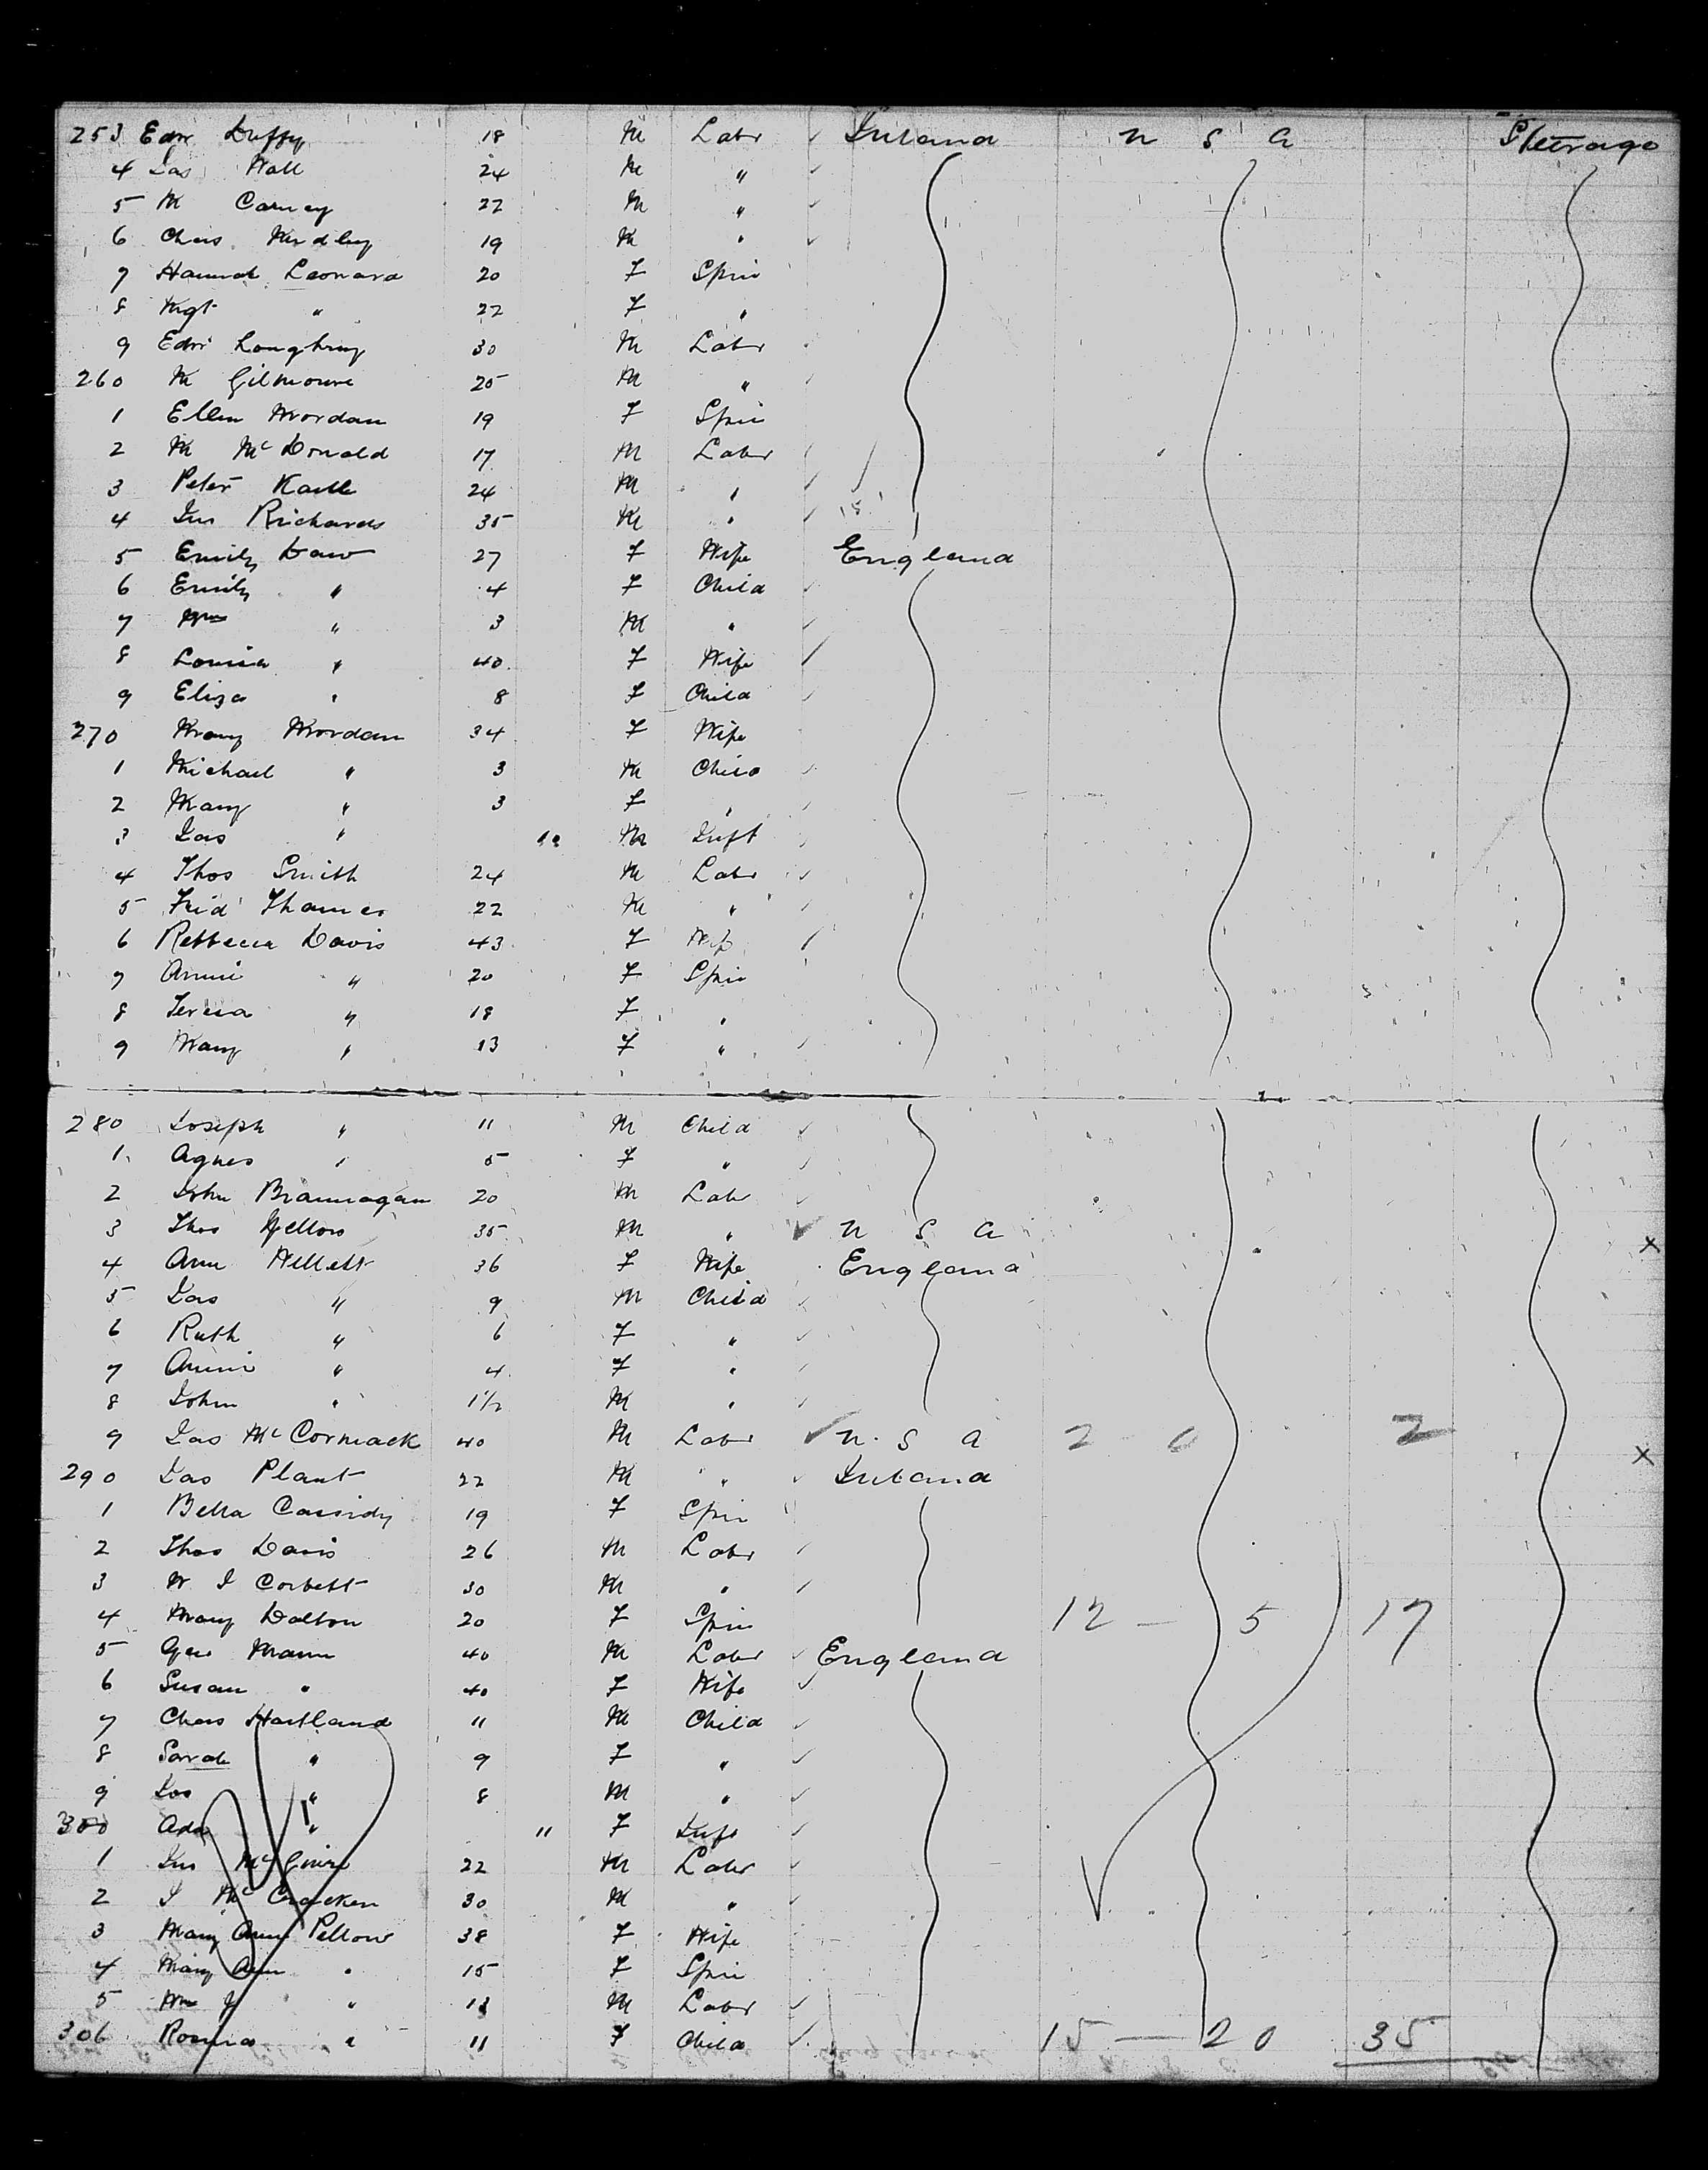 253 Edw Duffy 18 M Labr Ireland U S A Steerage
4 Jas Wall 24 M "
5 M Carney 22 M "
6 Chas 19 M "
7 Hannah Leonard 20 F Spin
8 Mgt " 22 F "
9 Edw Loughrey 30 M Labr
260 M Gilmoure 25 M "
1 Ellen Mordan 19 F Spin
2 M McDonald 17 M Labr
3 Peter 24 M "
4 Jno Richards 35 M "
5 Emily Daw 27 F Wife England
6 Emily " 4 F Child
7 Wm " 3 M "
8 Louisa " 40 F Wife
9 Eliza " 8 F Child
270 Mary Mordan 34 F Wife
1 Michael " 3 M Child
2 Mary " 3 F "
3 Jas " M Inft
4 Thos Smith 24 M Labr
5 Fred Thames 22 M "
6 Rebbecca Davis 43 F Wife
7 Annie " 20 F Spin
8 Teresa " 18 F "
9 Mary " 13 F "
280 Joseph " 11 M Child
1 Agnes " 5 F "
2 John Brannagan 20 M Labr
3 Thos 35 M " U S A X
4 Ann Hellett 36 F Wife England
5 Jas " 9 M Child
6 Ruth " 6 F "
7 Annie " 4 F "
8 John " 1½ M "
9 Jas McCormack 40 M Labr U. S A 2 - 0 2 X
290 Jas Plant 22 M " Ireland
1 Bella Cassidy 19 F Spin
2 Thos Davis 26 M Labr
3 W J Corbett 30 M "
4 Mary Dalton 20 F Spin 12 — 5 17
5 Geo Mann 40 M Labr England
6 Susan " 40 F Wife
7 Chas Hartland 11 M Child
8 Sarah " 9 F "
9 Jos " 8 M "
300 Ada " 11 F Inft
1 Jno McGuire 22 M Labr
2 J McCracken 30 M "
3 Mary Ann Pellow 38 F Wife
4 Mary Ann " 15 F Spin
5 Wm J " 13 M Labr
306 Rosina " 11 F Child 15 — 20 35